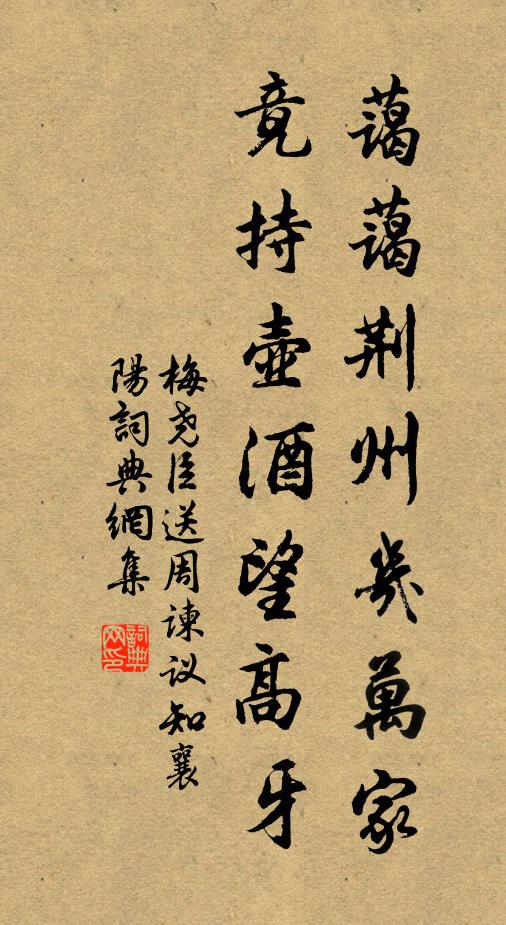 藹藹荆州幾萬家
竟持壺酒望高牙
梅堯臣送周諫议知襄
陽詞典網集
詞典
网印